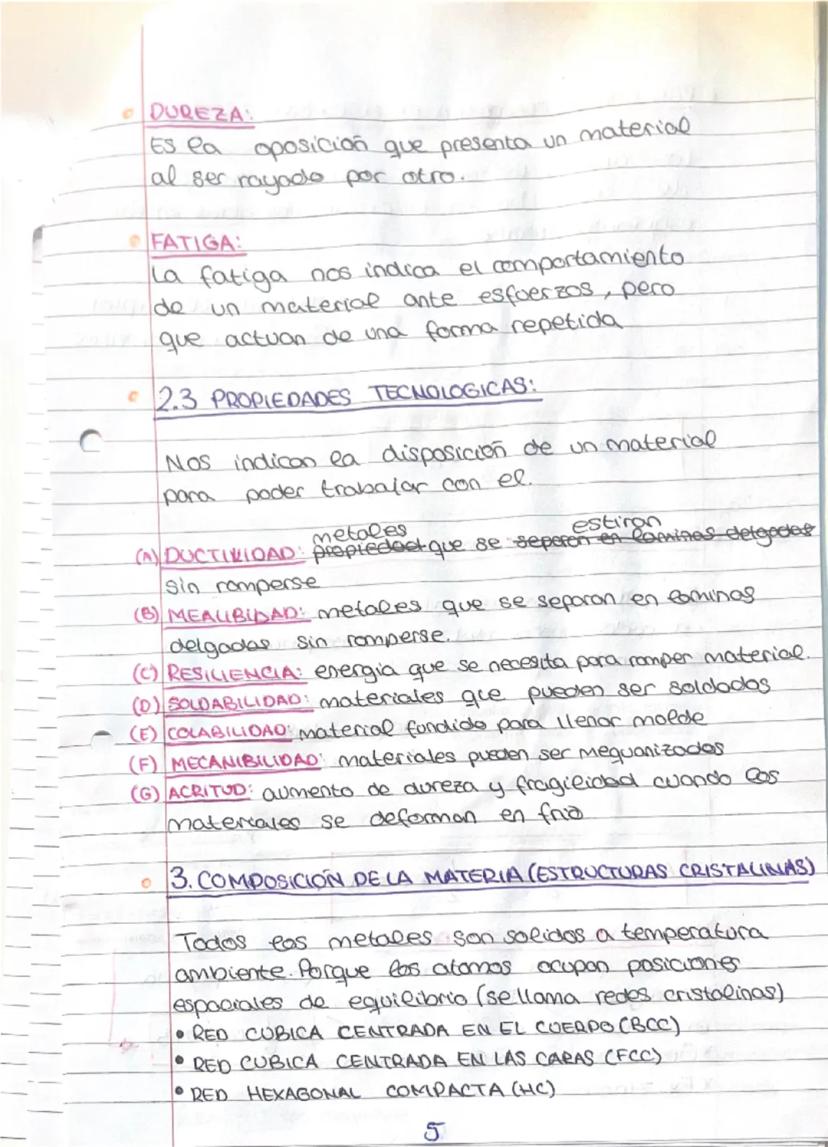 DUREZA:
Es la oposición que presenta un material
al ser rayado por otro.
FATIGA:
La fatiga nos indica el comportamiento
de un material ante esfuerzos, pero
que actuan de una forma repetida
2.3 PROPIEDADES TECNOLOGICAS:
Nos indican la disposición de un material
para poder trabajar con el.
metales estiran
(A) DUCTILIDAD: propiedad que se separan en laminas delgadas
sin romperse
(B) MEALIBIDAD: metales que se separan en laminas
delgadas sin romperse.
(C) RESILIENCIA: energia que se necesita para romper material.
(D) SOLDABILIDAD: materiales que pueden ser soldados
(E) COLABILIDAD: material fundido para llenar molde
(F) MECANIBILIDAD: materiales pueden ser mequanizados
(G) ACRITUD: aumento de dureza y fragilidad cuando los
materiales se deforman en frio
3. COMPOSICIÓN DE LA MATERIA (ESTRUCTURAS CRISTALINAS)
Todos los metales son solidos a temperatura
ambiente. Porque los atomos ocupan posiciones
espaciales de equilibrio (se llama redes cristalinas)
• RED CUBICA CENTRADA EN EL CUERPO (BCC)
• RED CUBICA CENTRADA EN LAS CARAS (FCC)
• RED HEXAGONAL COMPACTA (HC)
5